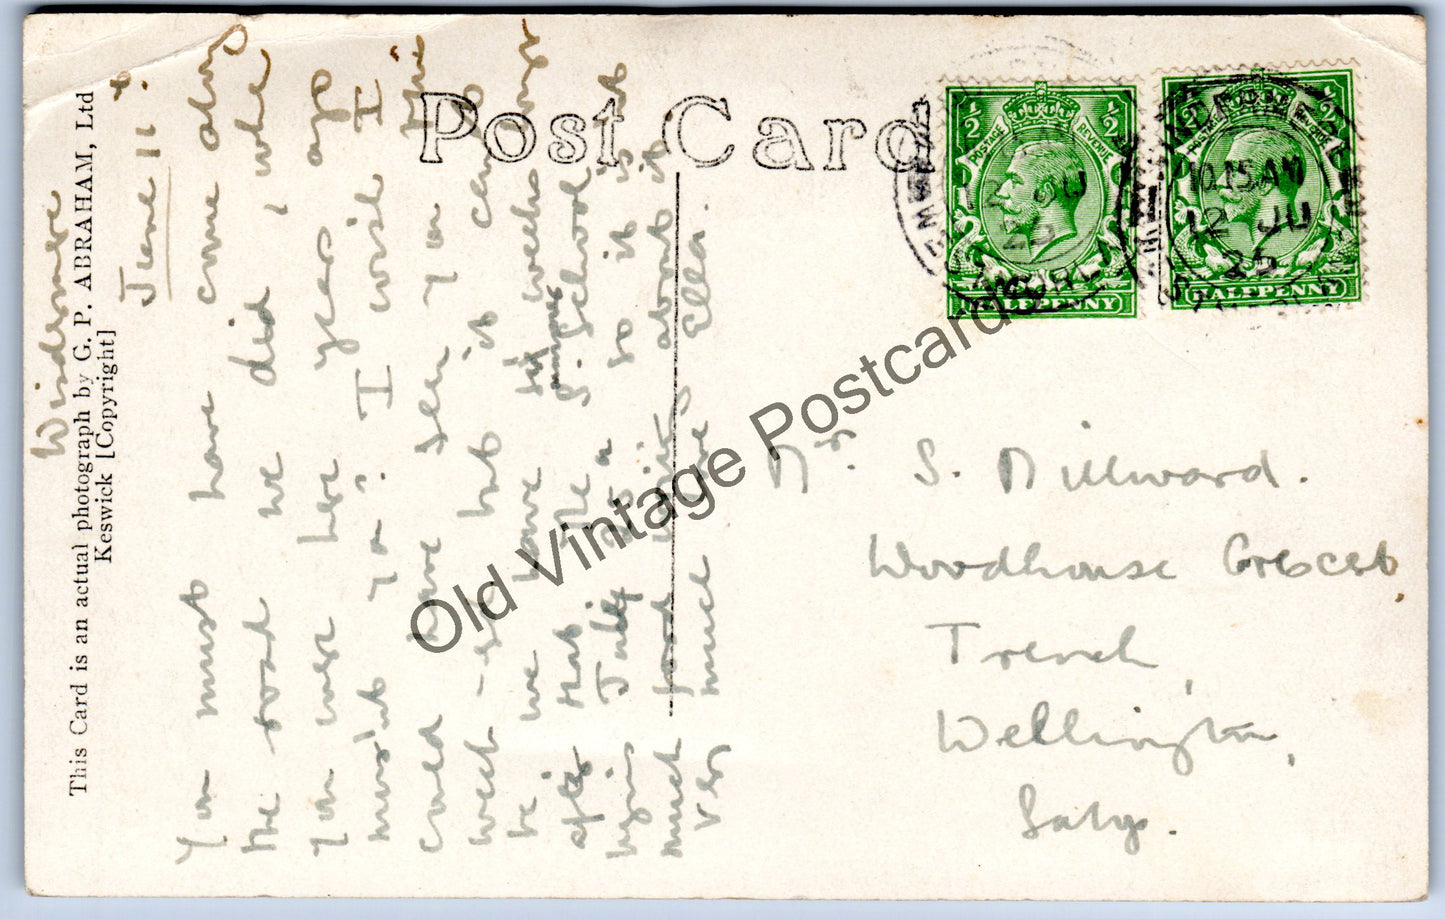 This Card is an actual photograph by G. P. ABRAHAM, Ltd
Keswick [Copyright]
Post Card
Windermere
June 11.
You must have come along
the road we did, when
You were here years ago
mustn't you? I wish I
could have seen you this
week - but it can't
be we have six weeks longer
after that the S. School
July so it is not
much good about it
Very much love Ella.
½ ½
POSTAGE REVENUE
HALFPENNY
½ ½
POSTAGE REVENUE
HALFPENNY
WINDERMERE
10.15 AM
12 JU
25
Mrs. S. Millward.
Woodhouse Crescent
Trench,
Wellington,
Salop.
Old Vintage Postcards